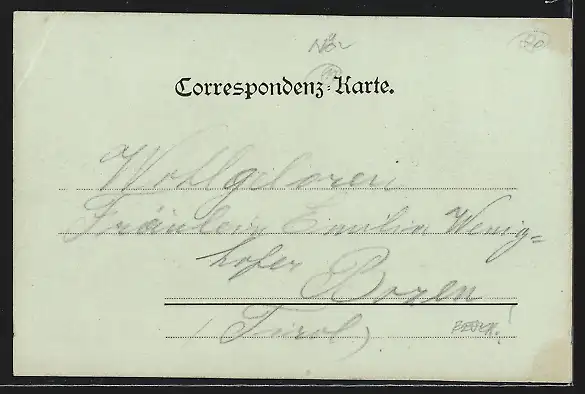 NÖ
Correspondenz-Karte.
Wohlgeboren
Fräulein Emilie Wenig=
hofer Bozen
(Tirol)